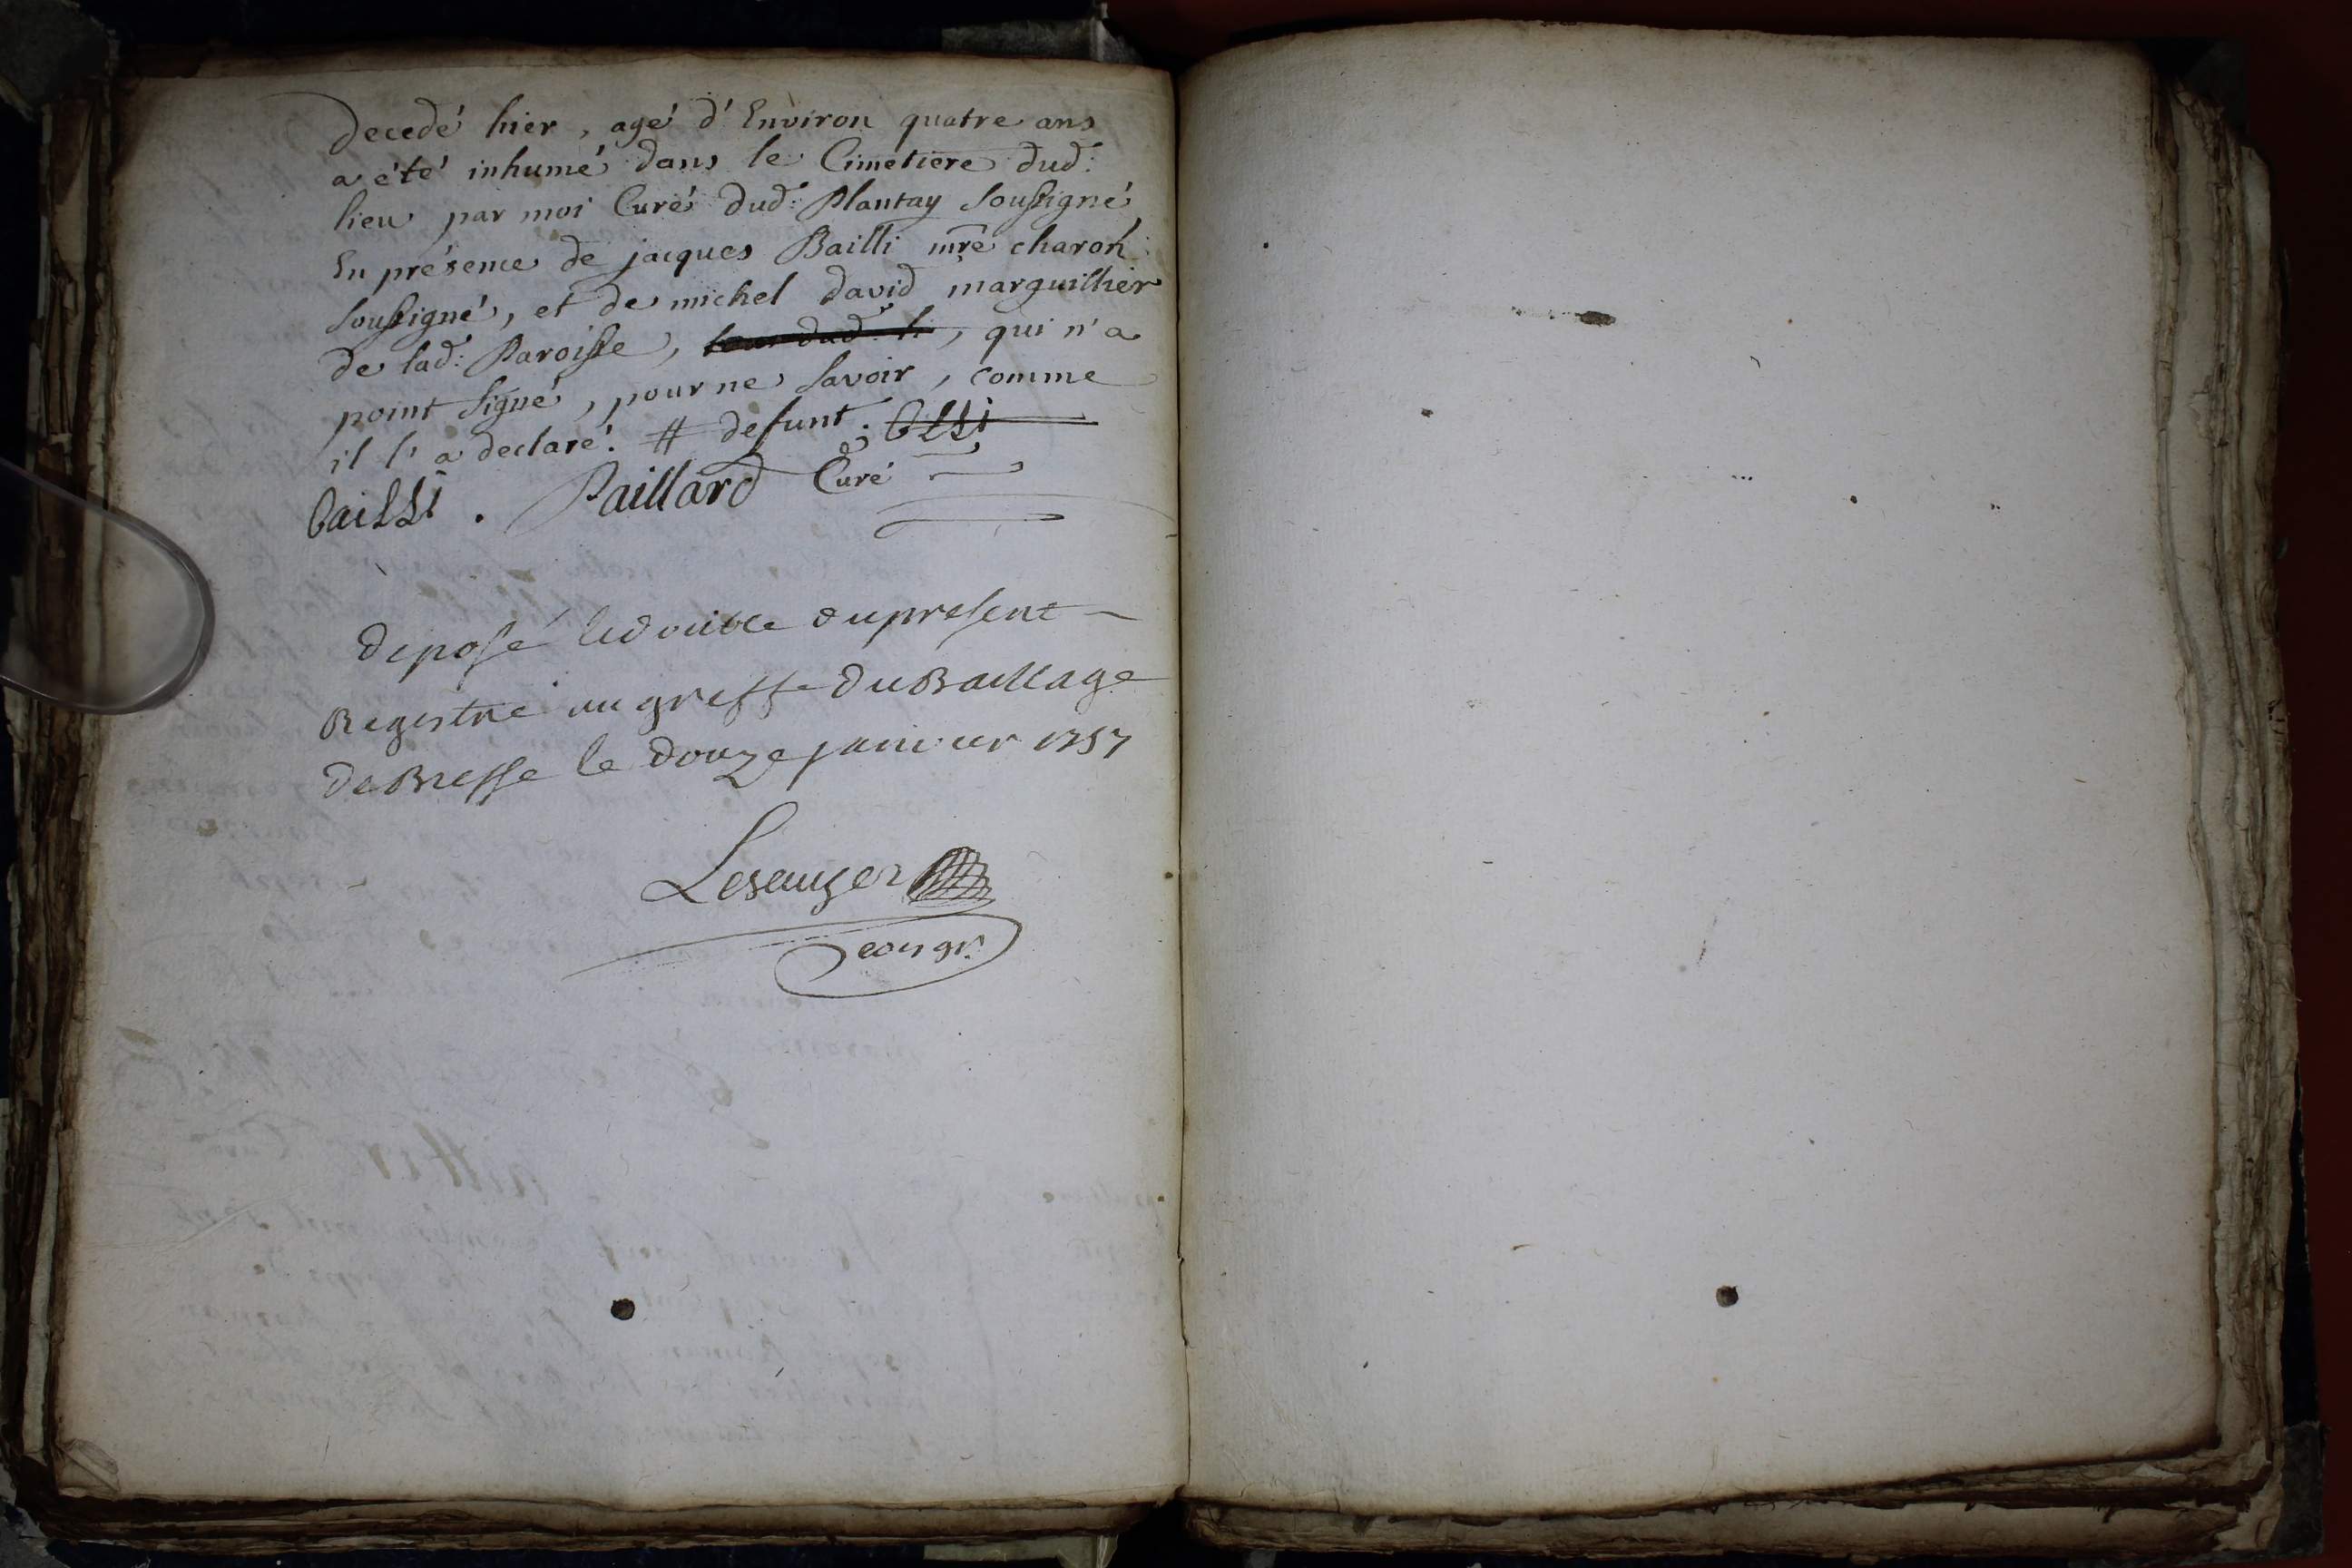 decedé hier, agé d'Environ quatre ans
a été inhumé dans le Cimetiere dud:
lieu par moi Curé dud: Plantay soussigné
En présence de jacques Bailli mre charon
soussigné, et de michel david marguillier
de lad: Paroisse, qui n'a
point signé, pour ne savoir, comme
il l'a declaré. # defunt.
bailli. Paillard Curé
deposé le double du present
Registre au greffe du Baillage
de Bresse le douze janvier 1757